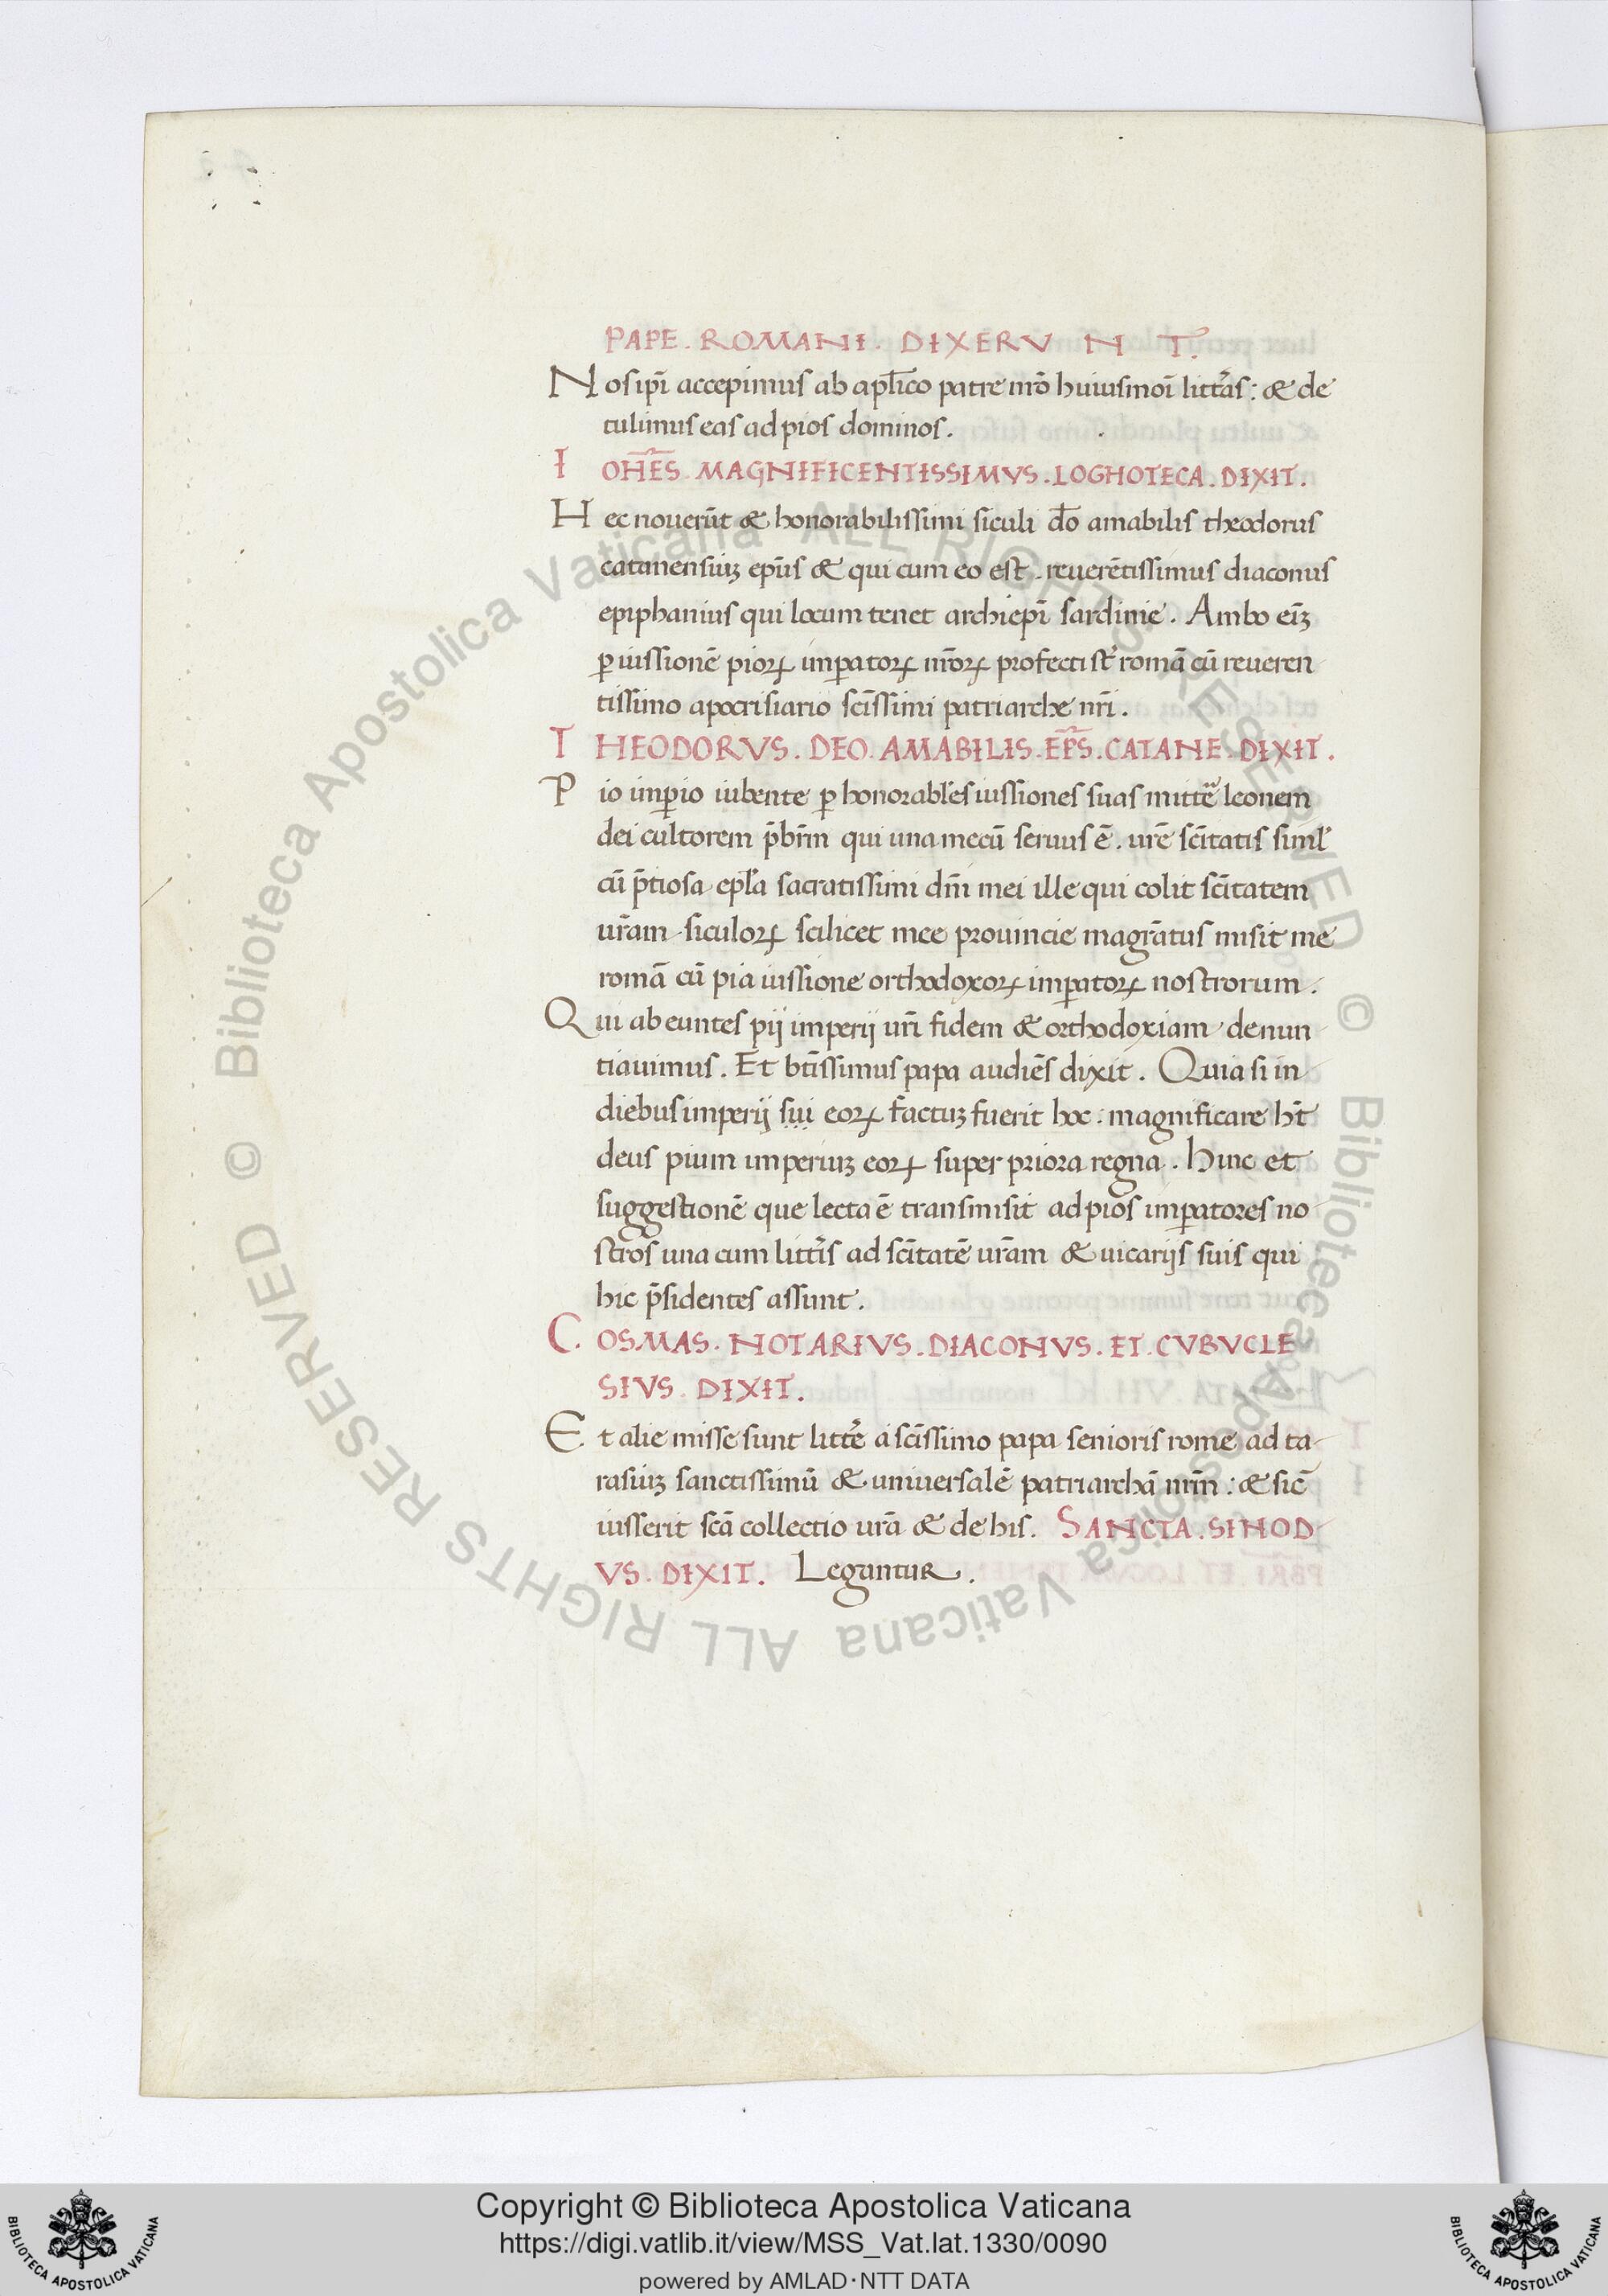 PAPE. ROMANI. DIXERVNT.
Nos ip̄i accepimus ab apl̄ico patre nrō huiusmoī litt̄as: & de
tulimus eas ad pios dominos.
IOHĒS. MAGNIFICENTISSIMVS. LOGHOTECA. DIXIT.
Hec nouerūt & honorabilissimi siculi d̄o amabilis theodorus
catanensiuꝫ ep̄us & qui cum eo est. reuerētissimus diaconus
epiphanius qui locum tenet archiep̄i sardinie. Ambo eīꝫ
ꝑ iussionē pioꝝ imꝑatoꝝ nr̄oꝝ profecti st̄ romā cū reueren
tissimo apocrisiario scīssimi patriarche nr̄i.
THEODORVS. DEO. AMABILIS. EP̄S. CATANE. DIXIT.
Pio imꝑio iubente ꝑ honorabl̄es iussiones suas mittē leonem
dei cultorem p̄br̄m qui una mecū seruus ē. ur̄e scītatis siml̄
cū p̄tiosa epl̄a sacratissimi dn̄i mei ille qui colit scītatem
ur̄am siculoꝝ scilicet mee prouincie magr̄atus misit me
romā cū pia iussione orthodoxoꝝ imꝑatoꝝ nostrorum.
Qui abeuntes pij imperij ur̄i fidem & orthodoxiam denun
tiauimus. Et bt̄issimus papa audiēs dixit. Quia si in
diebus imperij sui eoꝝ factuꝫ fuerit hoc: magnificare ht̄
deus pium imperiuꝫ eoꝝ super priora regna. Hinc et
suggestionē que lecta ē transmisit ad pios imꝑatores no
stros una cum litt̄is ad scītatē ur̄am & uicarijs suis qui
hic p̄sidentes assunt.
COSMAS. NOTARIVS. DIACONVS. ET. CVBVCLE
SIVS. DIXIT.
Et alie misse sunt litt̄e a scīssimo papa senioris rome ad ta
rasiuꝫ sanctissimū & uniuersalē patriarchā nr̄m: & sic̄
iusserit scā collectio ur̄a & de his. SANCTA. SINOD
VS. DIXIT. Legantur.
© Biblioteca Apostolica Vaticana ALL RIGHTS RESERVED © Biblioteca Apostolica Vaticana ALL RIGHTS RESERVED
Copyright © Biblioteca Apostolica Vaticana
https://digi.vatlib.it/view/MSS_Vat.lat.1330/0090
powered by AMLAD·NTT DATA
BIBLIOTECA APOSTOLICA VATICANA
BIBLIOTECA APOSTOLICA VATICANA